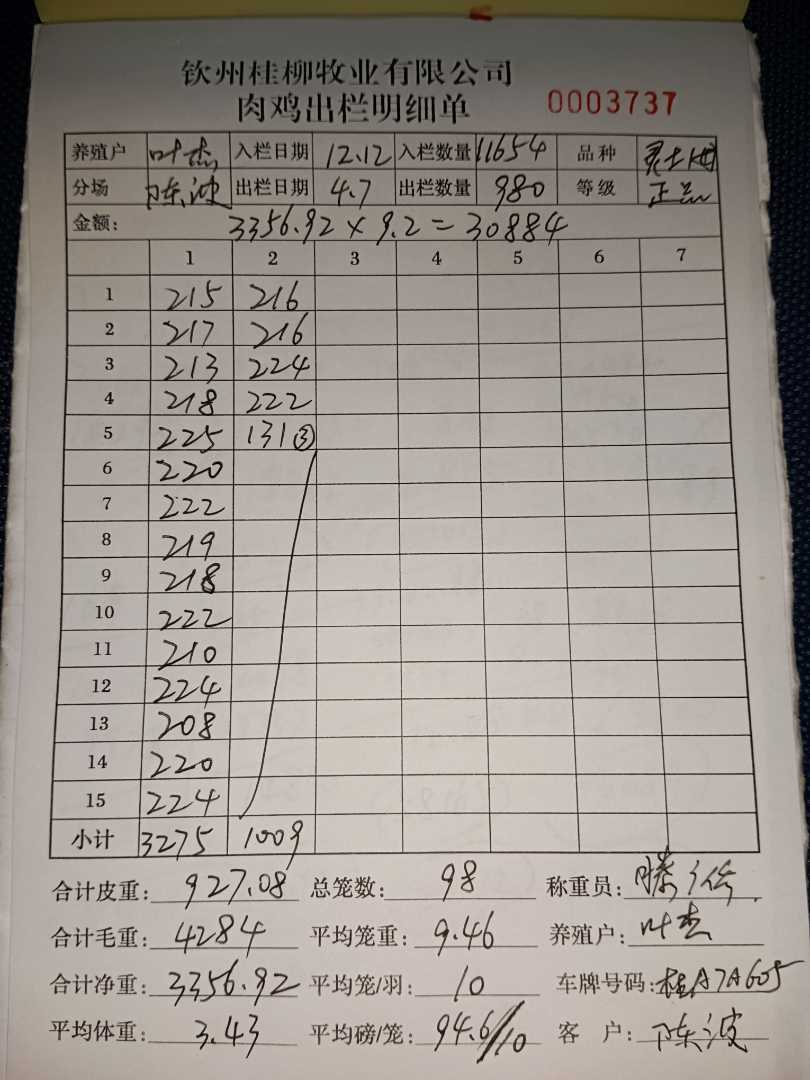 钦州桂柳牧业有限公司
肉鸡出栏明细单 0003737
养殖户 叶杰 入栏日期 12.12 入栏数量 11654 品种
分场 陈波 出栏日期 4.7 出栏数量 980 等级 正品
金额: 3356.92 × 9.2 = 30884
1 2 3 4 5 6 7
1 215 216
2 217 216
3 213 224
4 218 222
5 225 131③
6 220
7 222
8 219
9 218
10 222
11 210
12 224
13 208
14 220
15 224
小计 3275 1009
合计皮重: 927.08 总笼数: 98 称重员: 滕
合计毛重: 4284 平均笼重: 9.46 养殖户: 叶杰
合计净重: 3356.92 平均笼/羽: 10 车牌号码: 桂A7A605
平均体重: 3.43 平均磅/笼: 94.6/10 客 户: 陈波